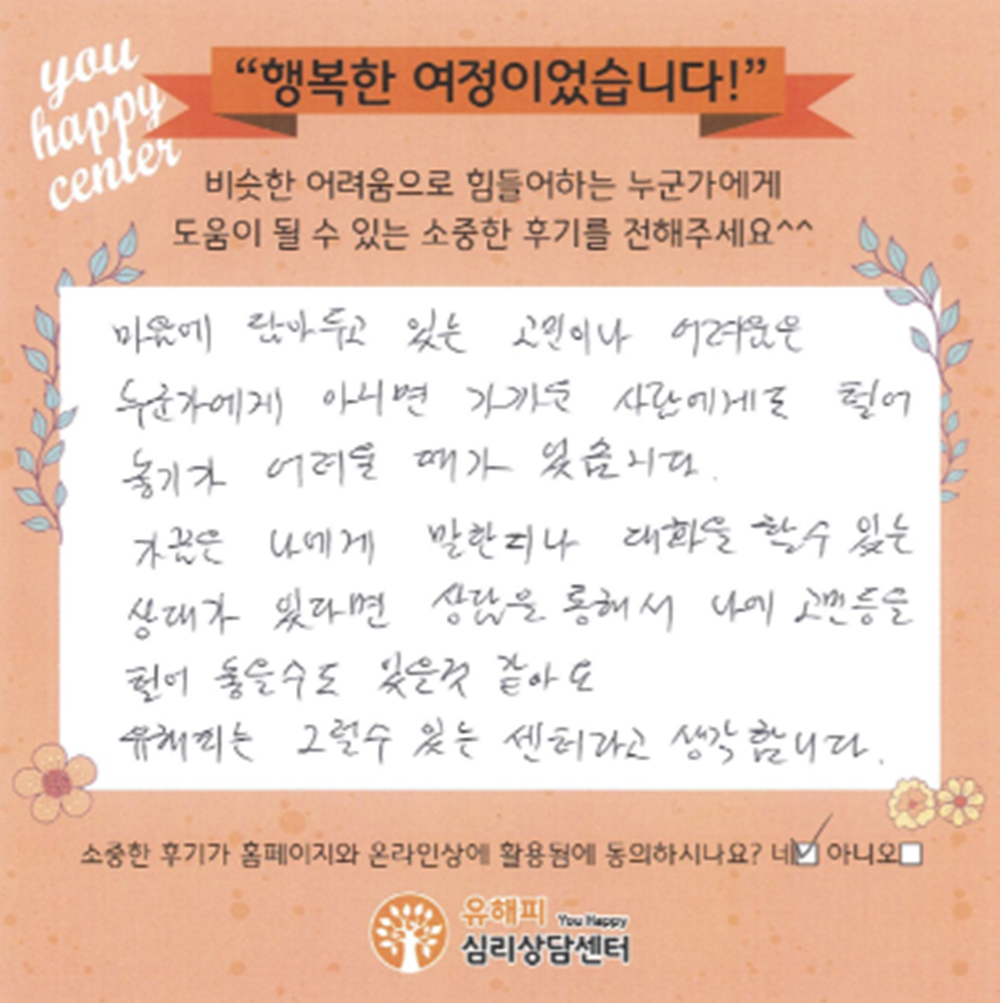 you
happy
center
“행복한 여정이었습니다!”
비슷한 어려움으로 힘들어하는 누군가에게
도움이 될 수 있는 소중한 후기를 전해주세요^^
마음에 담아두고 있는 고민이나 어려움은
누군가에게 아니면 가까운 사람에게도 털어
놓기가 어려울 때가 있습니다.
가끔은 나에게 말한마디나 대화을 할수 있는
상대가 있다면 상담을 통해서 나에 고민등을
털어 놓을수도 있을것 같아요
유해피는 그럴수 있는 센터라고 생각합니다.
소중한 후기가 홈페이지와 온라인상에 활용됨에 동의하시나요? 네 아니오
유해피 You Happy
심리상담센터